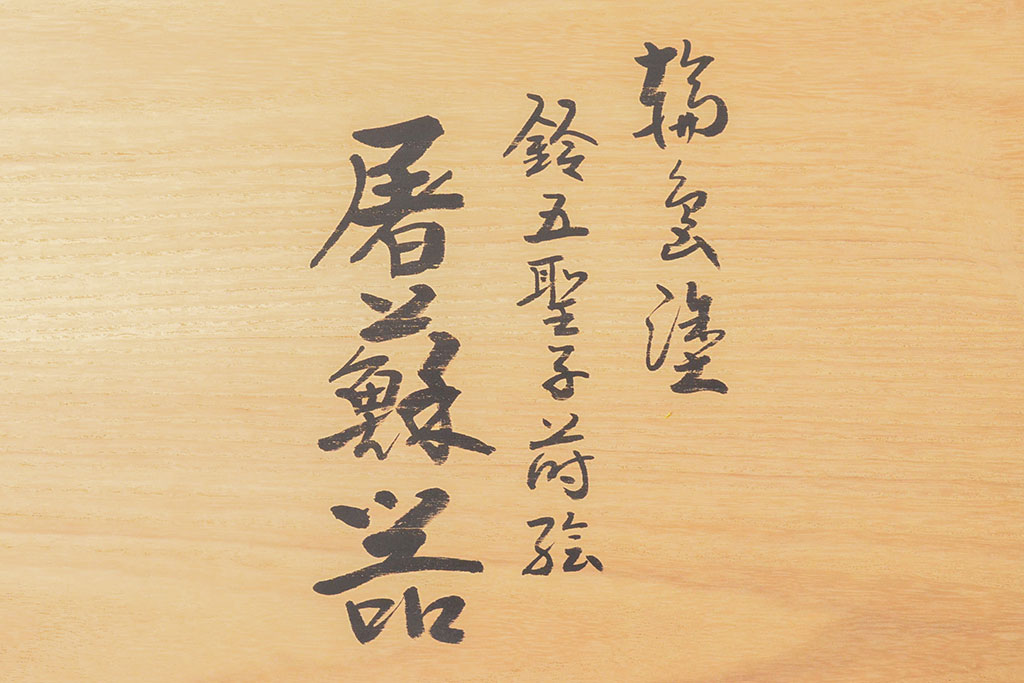 輪島塗
鈴五聖子蒔絵
屠蘇器